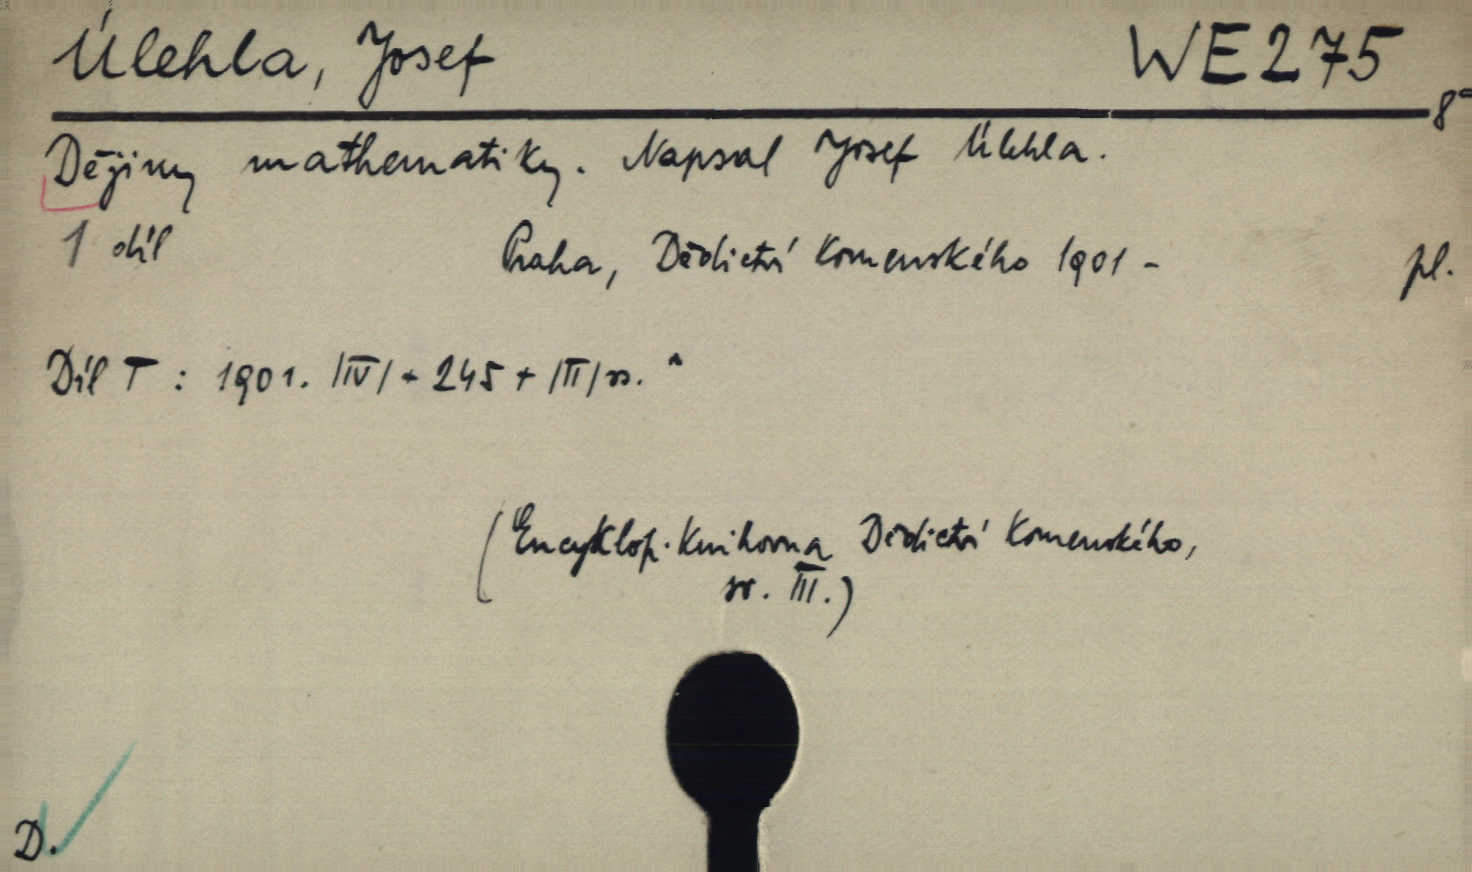 Úlehla, Josef WE 275
8°
Dějiny mathematiky. Napsal Josef Úlehla.
1 díl Praha, Dědictví Komenského 1901 - pl.
Díl I : 1901. /IV/ + 245 + /II/ ss.
(Encyklop. Knihovna Dědictví Komenského,
sv. III.)
D.